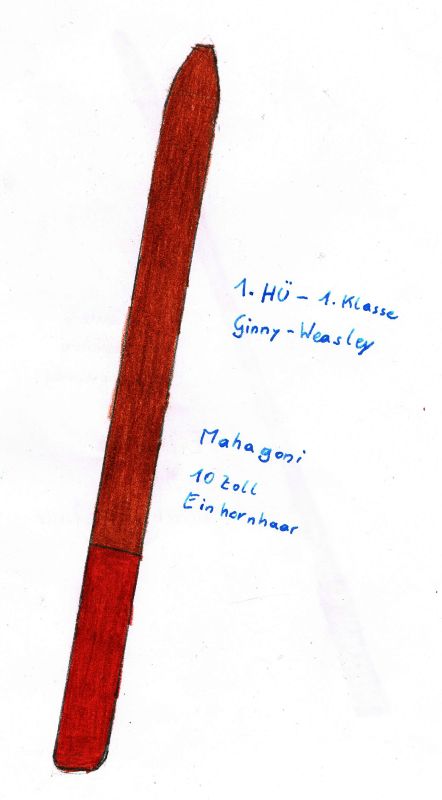 1. HÜ - 1. Klasse
Ginny-Weasley
Mahagoni
10 Zoll
Einhornhaar